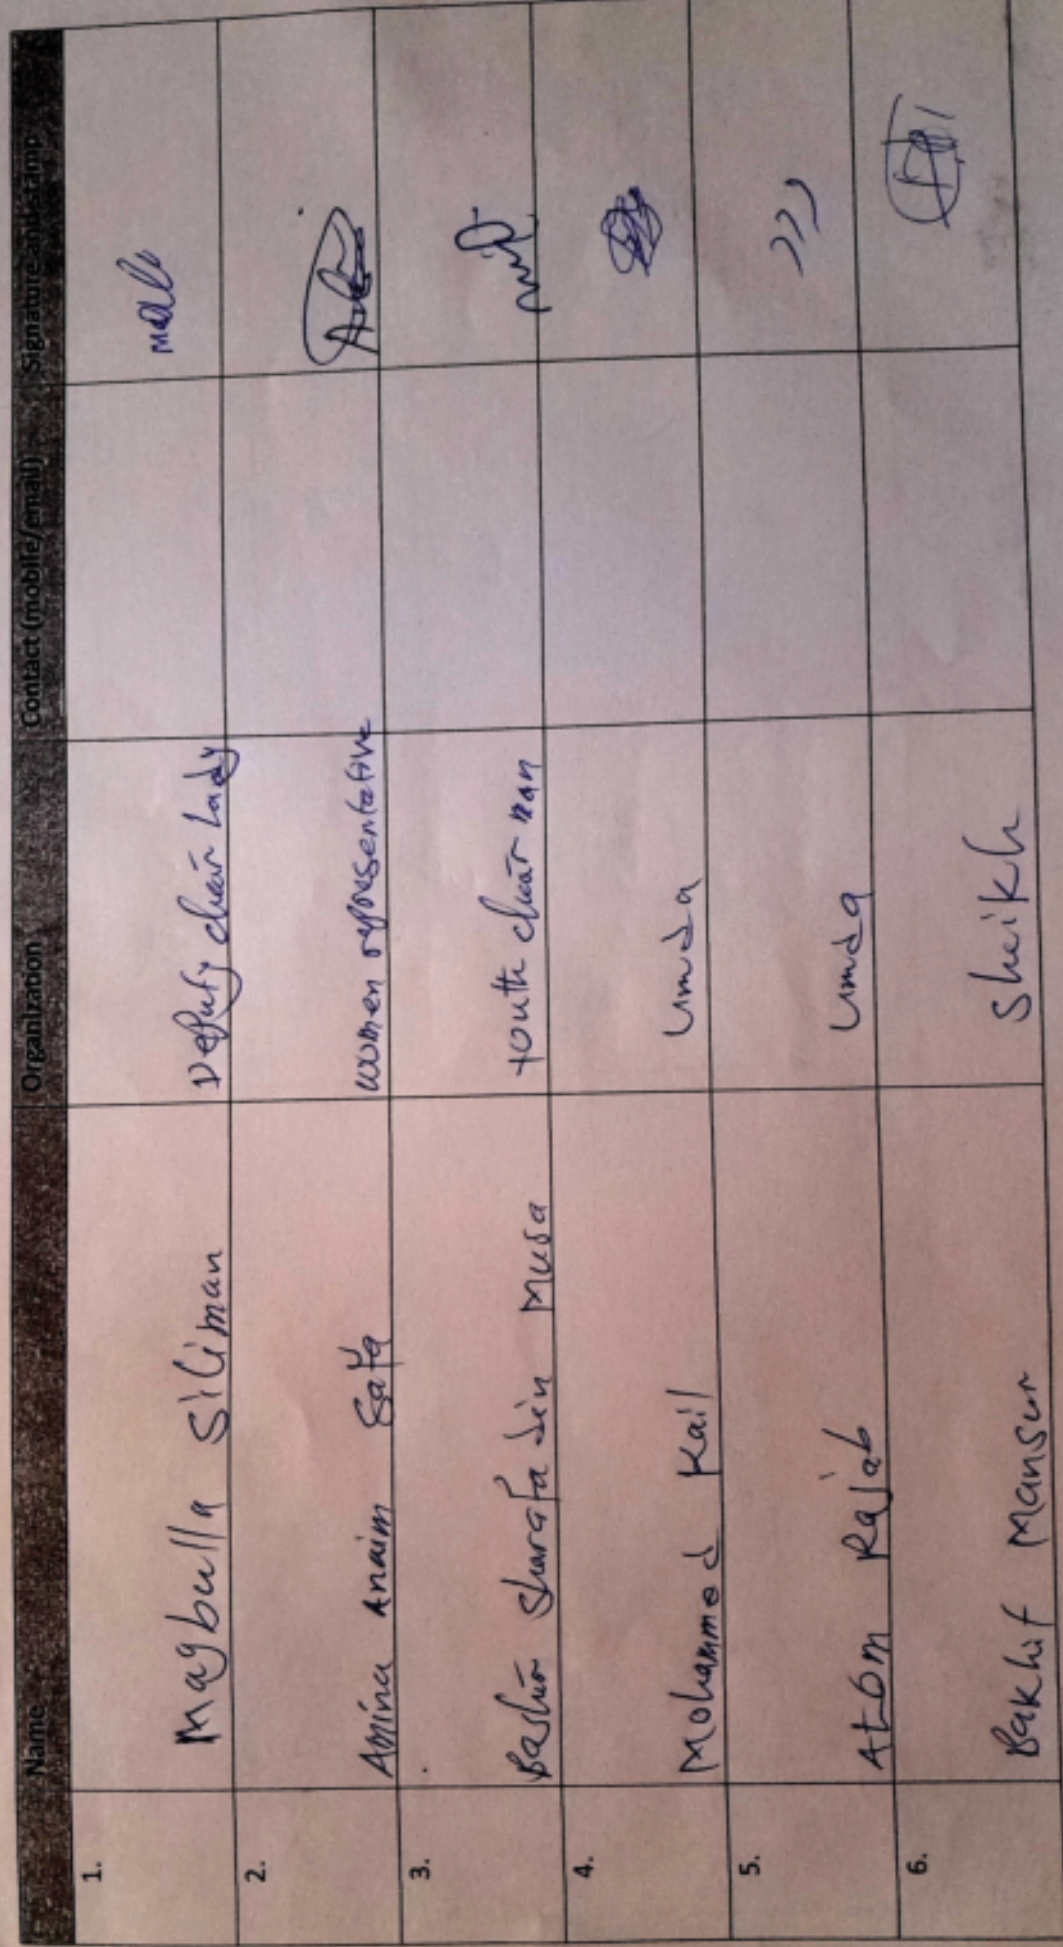 Name Organization Contact (mobile/email) Signature and stamp
1. Magbulla Siliman Deputy chair Lady
2. Amina Anaim Safa women representative
3. Bashir Sharafa din Musa youth chair man
4. Mohammed Kail umda
5. Atom Rajab umda
6. Bakhit Mansur Sheikh